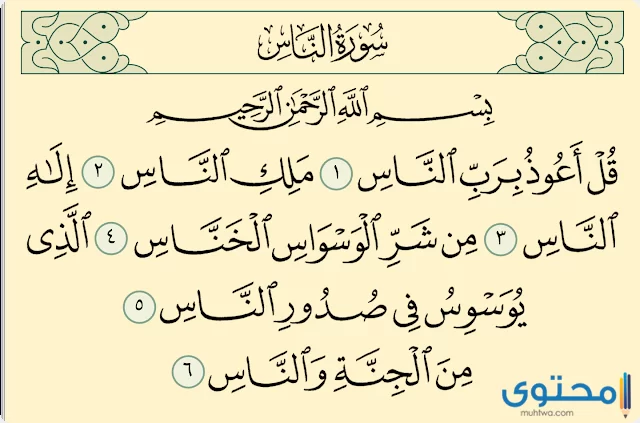 سُورَةُ النَّاسِ
بِسْمِ اللَّهِ الرَّحْمَٰنِ الرَّحِيمِ
قُلْ أَعُوذُ بِرَبِّ النَّاسِ ١ مَلِكِ النَّاسِ ٢ إِلَٰهِ
النَّاسِ ٣ مِن شَرِّ الْوَسْوَاسِ الْخَنَّاسِ ٤ الَّذِى
يُوَسْوِسُ فِى صُدُورِ النَّاسِ ٥
مِنَ الْجِنَّةِ وَالنَّاسِ ٦
محتوى
muhtwa.com